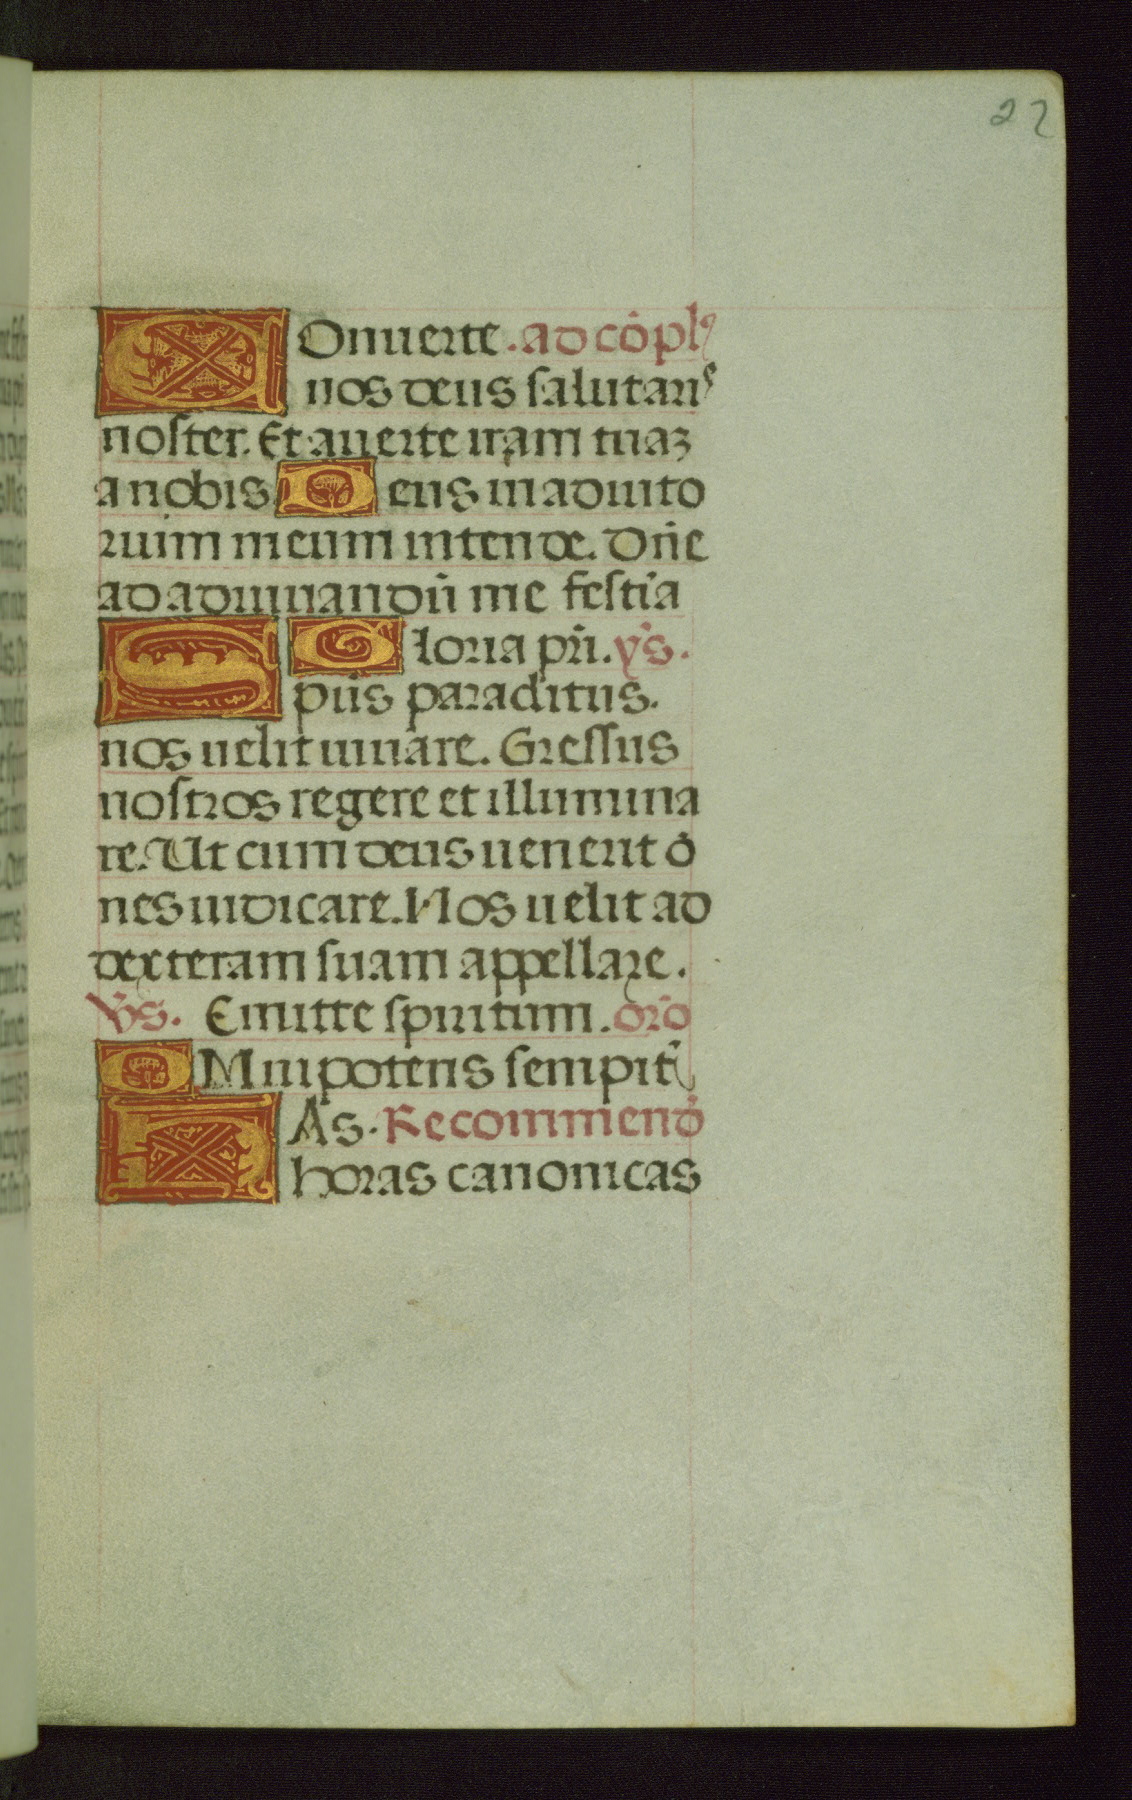 22
COnuerte. ad cōpl⁹
nos deus salutarıs
noster. Et auerte iram tuaʒ
a nobis Deus in adiuto
rium meum intende. Dn̄e
ad adiuuandū me festīa
Gloria pr̄i. v̄s.
Spiīs paraclitus.
nos uelit iuuare. Gressus
nostros regere et illumina
re. Ut cum deus uenerit ō
nes iudicare. Nos uelit ad
dexteram suam appellare.
Vs̄. Emitte spiritum. or̄o
OMnipotens sempit̄
HAs. Recommend̄o
horas canonicas